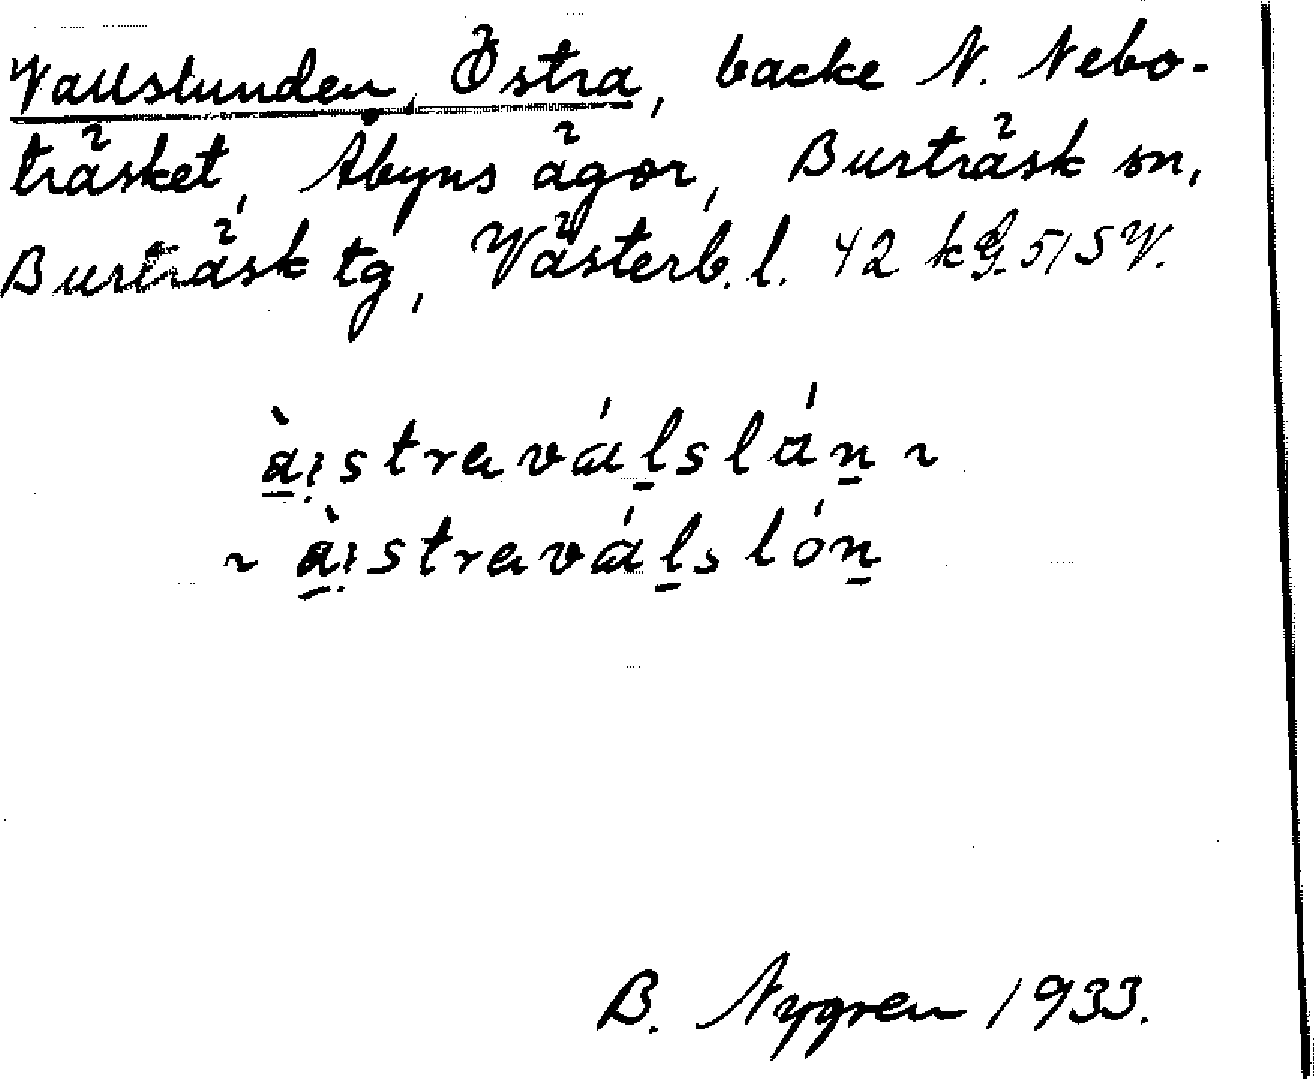 Vallslunden, Östra, backe N. Nebo-
träsket, Åbyns ägor, Burträsk sn,
Burträsk tg, Västerb. l. 42 kg. 515 V.
à̱i̯straválslán ~
~ à̱i̯straválslón
B. Nygren 1933.